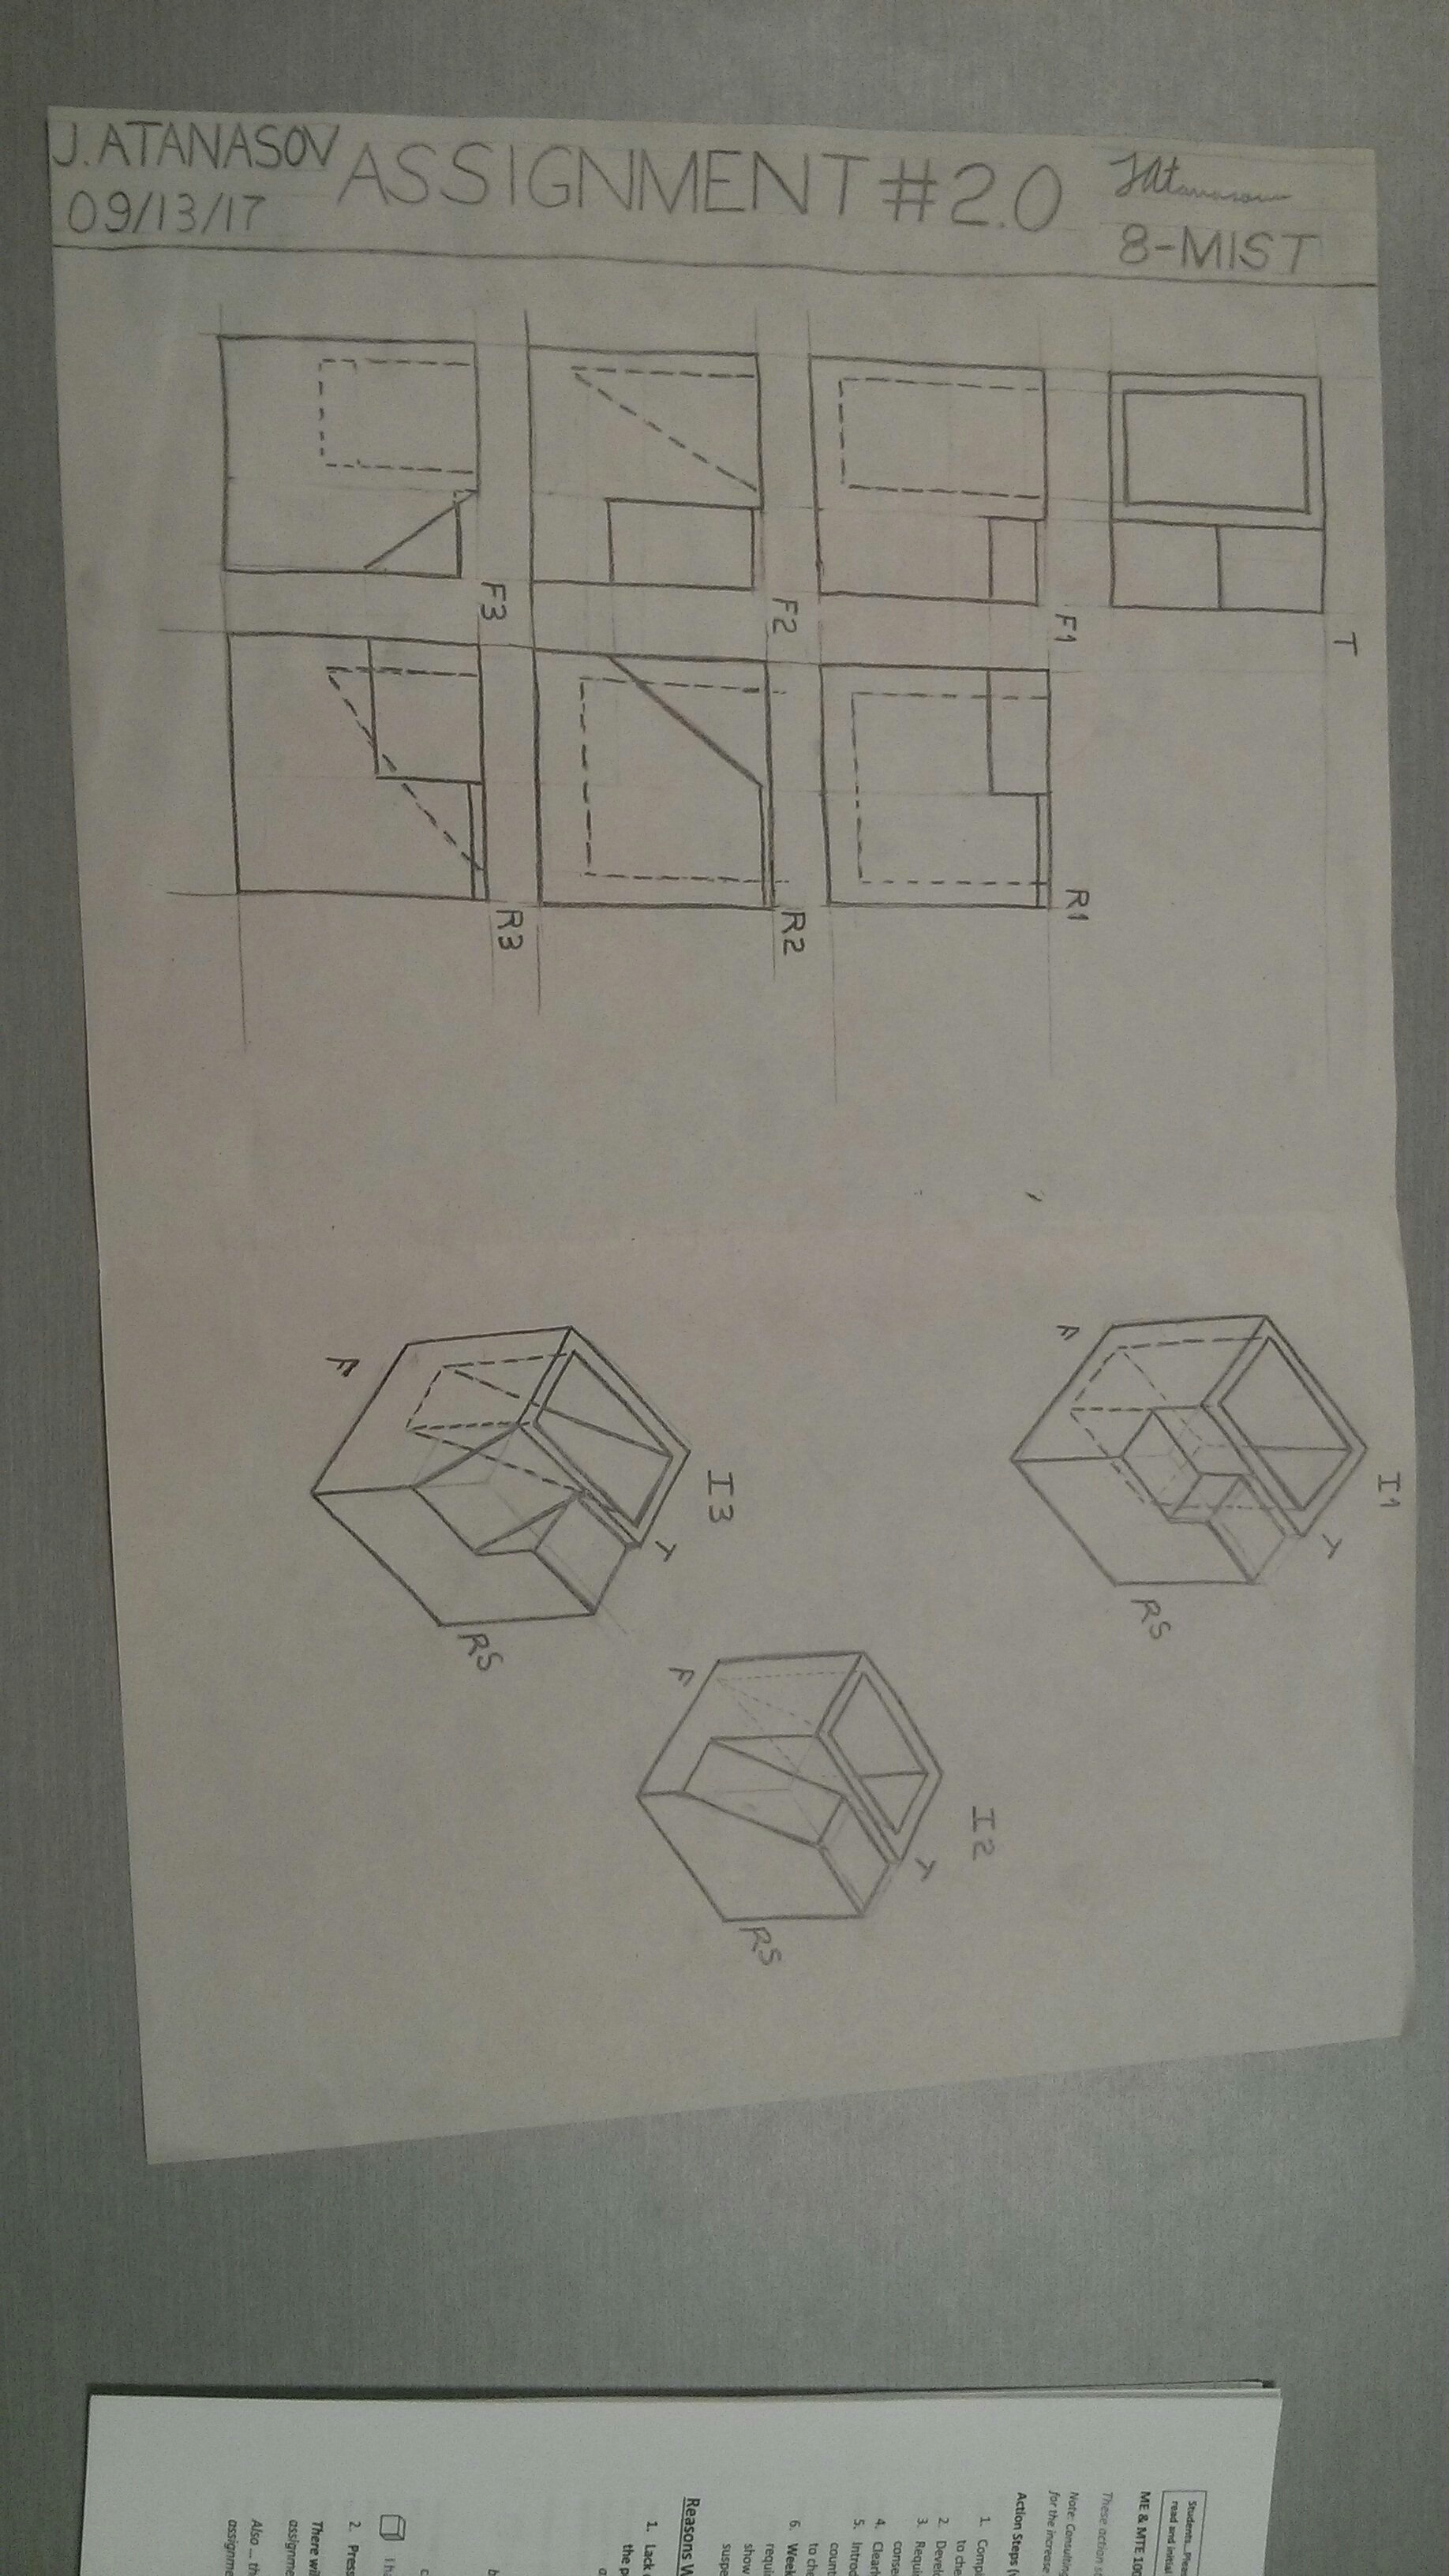 J. ATANASOV
09/13/17
ASSIGNMENT #2.0
JAtanasov
8-MIST
T
F1
R1
F2
R2
F3
R3
I1
F
T
RS
I2
F
T
RS
I3
F
T
RS
Students...Please
read and initial
ME & MTE 100
These action s
Note: Consulting
for the increase
Action Steps (
1. Compl
to che
2. Devel
3. Requi
conse
4. Clearl
5. Introd
count
to che
6. Week
requi
show
suspe
Reasons W
1. Lack
the p
I ha
2. Press
There wil
assignme
Also ... th
assignme